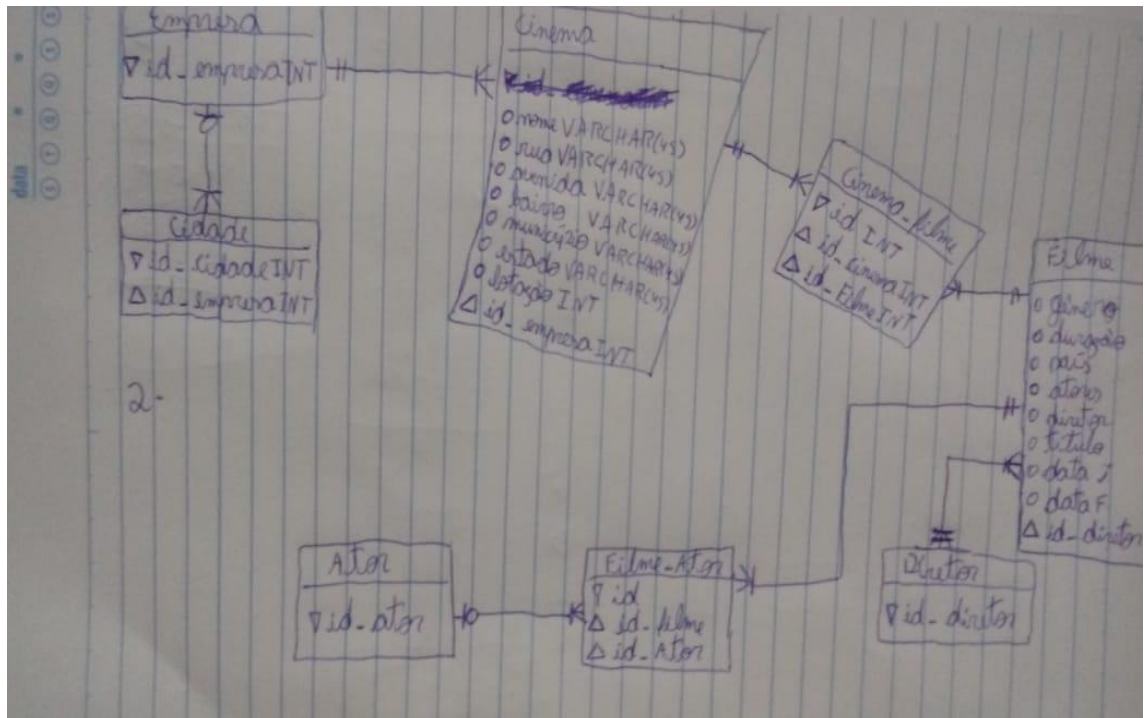 data
Empresa
id_empresa INT
Cidade
id_cidade INT
id_empresa INT
Cinema
id_
nome VARCHAR(45)
rua VARCHAR(45)
avenida VARCHAR(45)
bairro VARCHAR(45)
município VARCHAR(45)
estado VARCHAR(45)
lotação INT
id_empresa INT
Cinema_filme
id INT
id_cinema INT
id_Filme INT
Filme
gênero
duração
país
atores
diretor
título
data I
data F
id_diretor
2-
Ator
id_ator
Filme-Ator
id
id_filme
id_Ator
Diretor
id_diretor